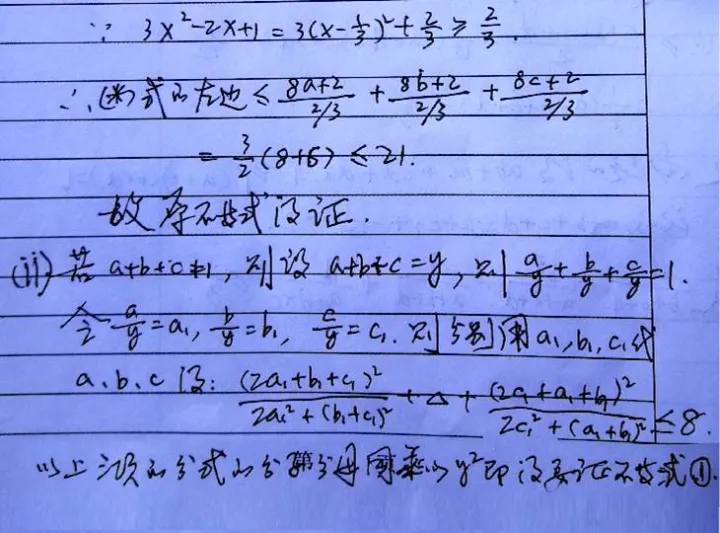 ∵ 3x²-2x+1 = 3(x-1/3)²+2/3 ≥ 2/3.
∴ (※)式的左边 ≤ (8a+2)/(2/3) + (8b+2)/(2/3) + (8c+2)/(2/3)
= 3/2 (8+6) ≤ 21.
故原不等式得证.
(ii) 若 a+b+c≠1, 则设 a+b+c=y, 则 a/y + b/y + c/y = 1.
令 a/y = a₁, b/y = b₁, c/y = c₁. 则分别用 a₁, b₁, c₁代
a、b、c 得: (2a₁+b₁+c₁)²/(2a₁²+(b₁+c₁)²) + △ + (2c₁+a₁+b₁)²/(2c₁²+(a₁+b₁)²) ≤ 8.
以上三项的分式的分子分母同乘以y²即得要证不等式①.